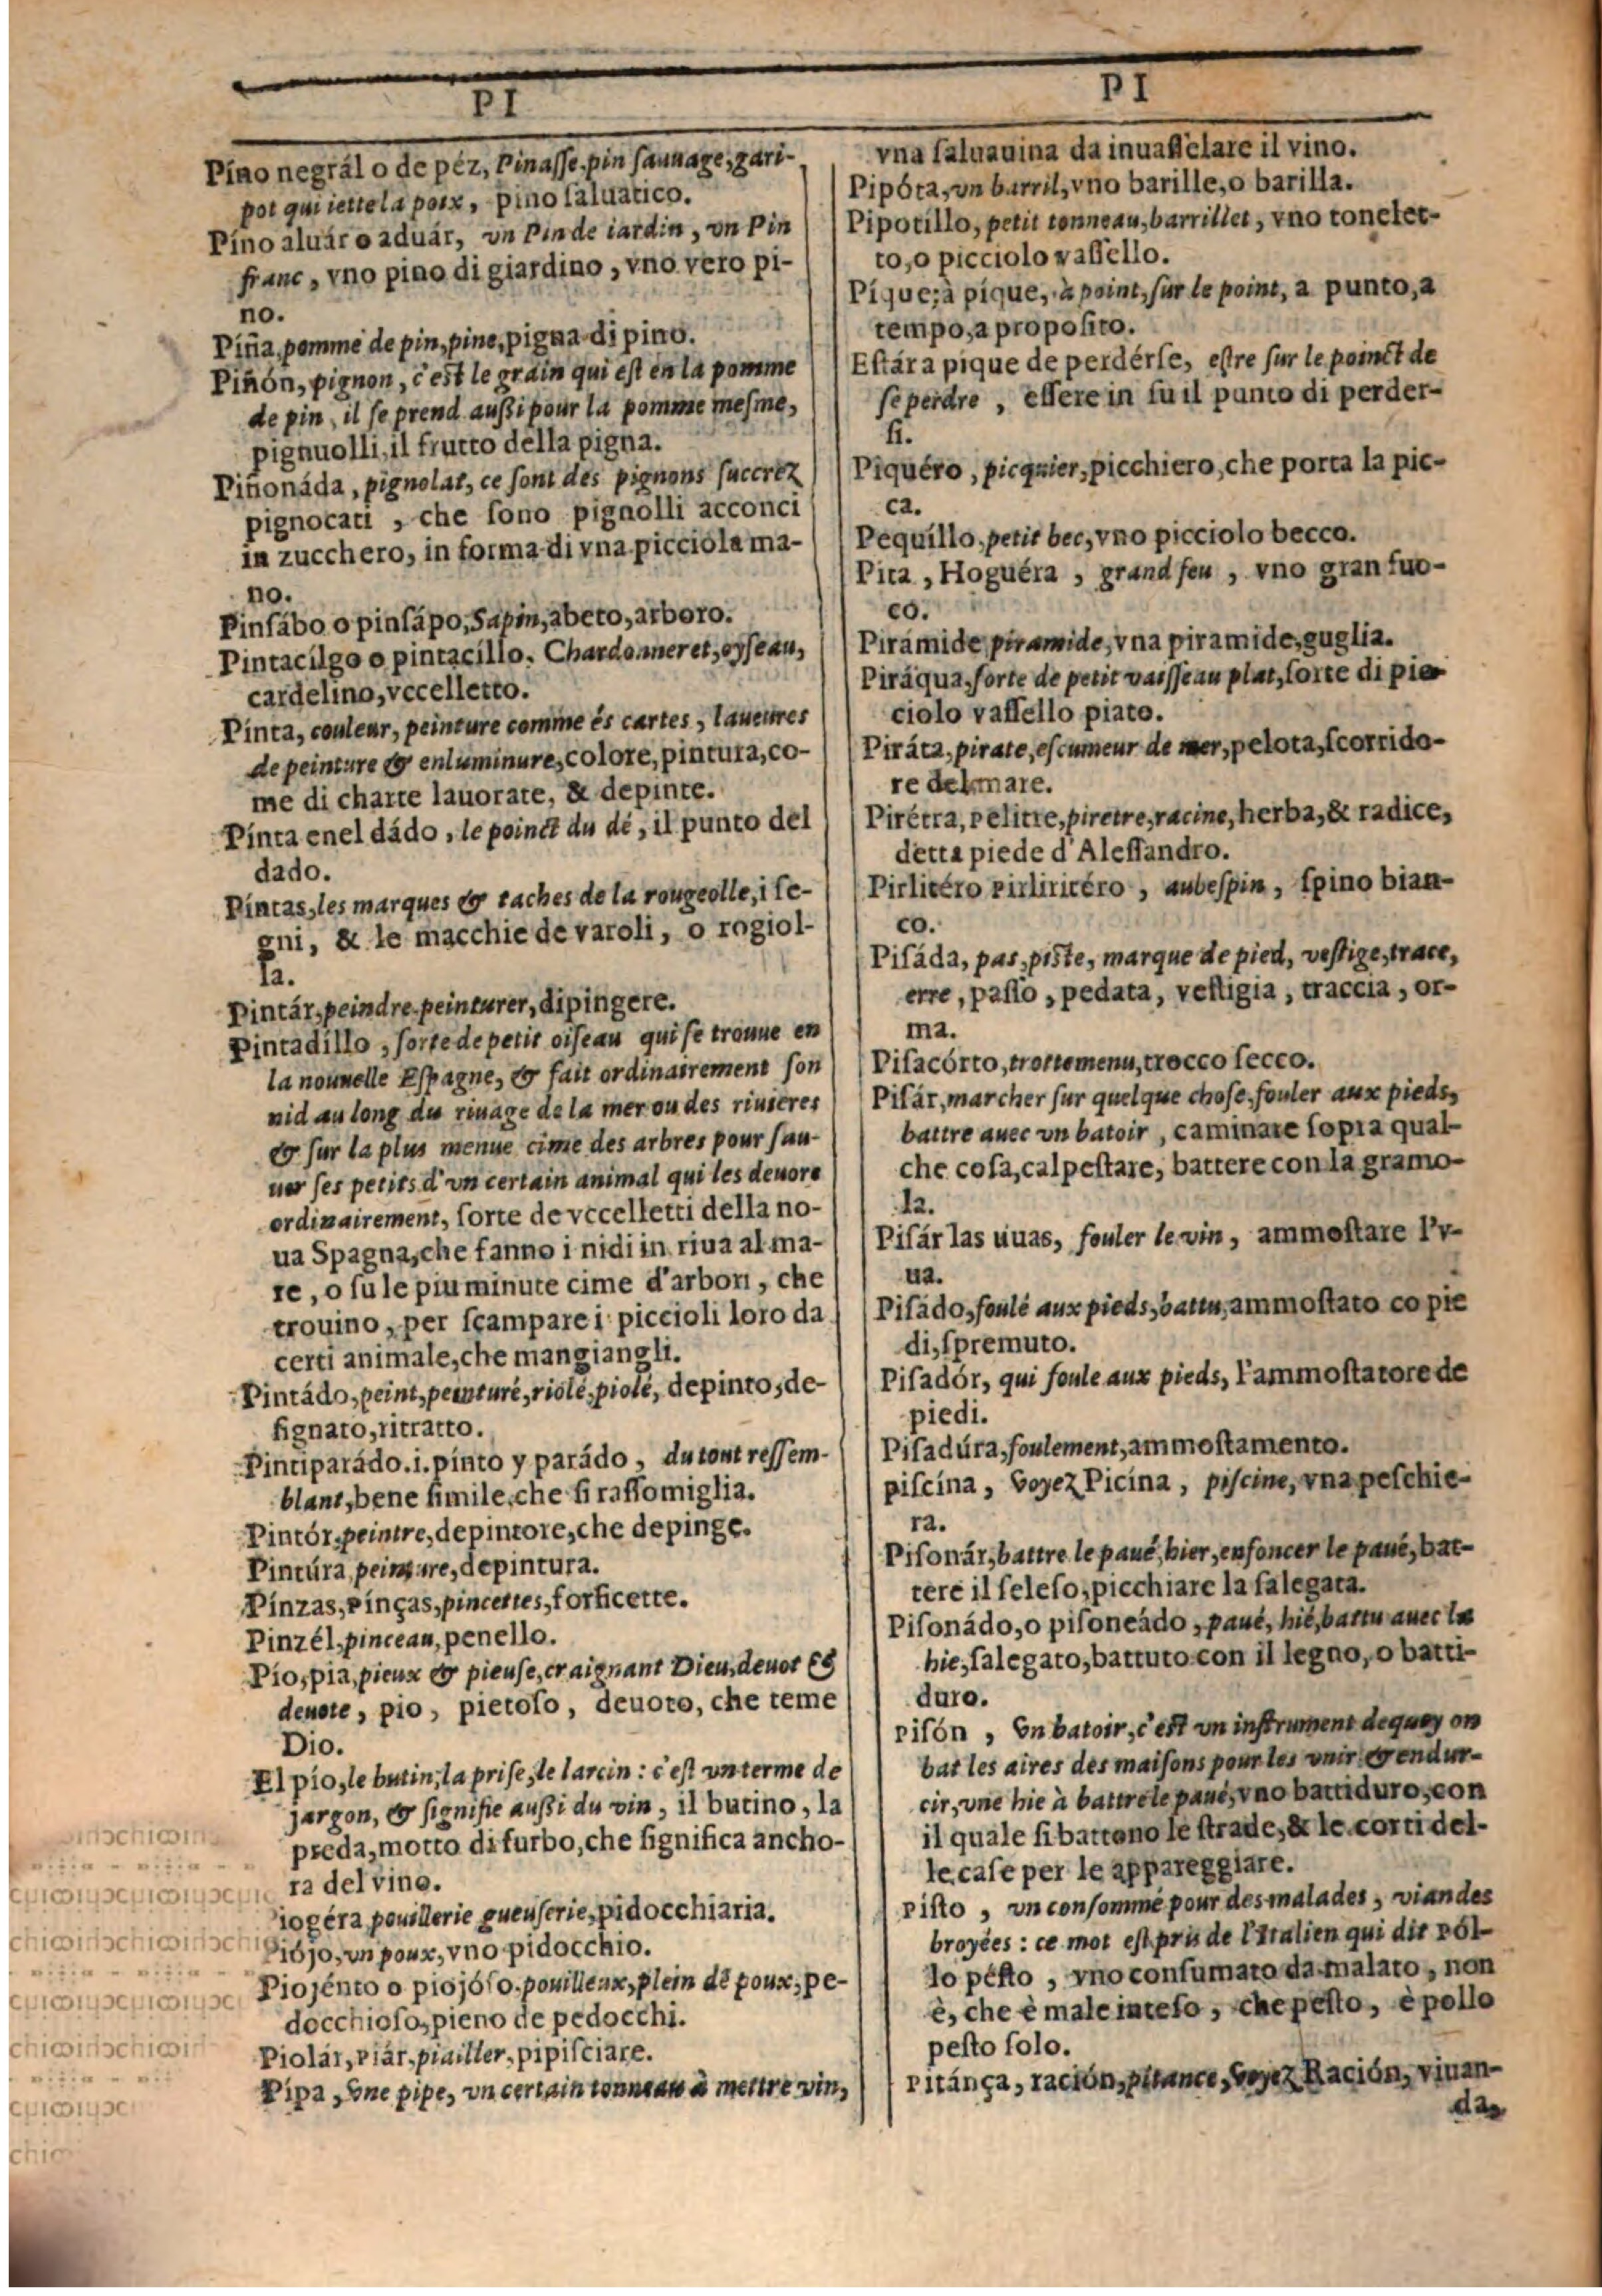 PI
Píno negrál o de péz, Pinasse, pin sauuage, gari-
pot qui iette la poix, pino saluatico.
Píno aluár o aduár, vn Pin de iardin, vn Pin
franc, vno pino di giardino, vno vero pi-
no.
Píña, pomme de pin, pine, pigna di pino.
Piñón, pignon, c'est le grain qui est en la pomme
de pin, il se prend aussi pour la pomme mesme,
pignuolli, il frutto della pigna.
Piñonáda, pignolat, ce sont des pignons succrez
pignocati, che sono pignolli acconci
in zucchero, in forma di vna picciola ma-
no.
Pinsábo o pinsápo, Sapin, abeto, arboro.
Pintacílgo o pintacíllo, Chardonneret, oyseau,
cardelino, vccelletto.
Pínta, couleur, peinture comme és cartes, laueures
de peinture & enluminure, colore, pintura, co-
me di charte lauorate, & depinte.
Pínta enel dádo, le poinct du dé, il punto del
dado.
Píntas, les marques & taches de la rougeolle, i se-
gni, & le macchie de varoli, o rogiol-
la.
Pintár, peindre, peinturer, dipingere.
Pintadíllo, sorte de petit oiseau qui se trouue en
la nouuelle Espagne, & fait ordinairement son
nid au long du riuage de la mer ou des riuieres
& sur la plus menue cime des arbres pour sau-
uer ses petits d'vn certain animal qui les deuore
ordinairement, sorte de vccelletti della no-
ua Spagna, che fanno i nidi in riua al ma-
re, o su le piu minute cime d'arbori, che
trouino, per scampare i piccioli loro da
certi animale, che mangiangli.
Pintádo, peint, peinturé, riolé, piolé, depinto, de-
signato, ritratto.
Pintiparádo. i. pínto y parádo, du tout ressem-
blant, bene simile, che si rassomiglia.
Pintór, peintre, depintore, che depinge.
Pintúra peinture, depintura.
Pínzas, Pínças, pincettes, forficette.
Pinzél, pinceau, penello.
Pío, pia, pieux & pieuse, craignant Dieu, deuot &
deuote, pio, pietoso, deuoto, che teme
Dio.
El pío, le butin, la prise, le larcin: c'est vn terme de
jargon, & signifie aussi du vin, il butino, la
preda, motto di furbo, che significa ancho-
ra del vino.
iogéra pouillerie gueuserie, pidocchiaria.
Piójo, vn poux, vno pidocchio.
Piojénto o piojóso, pouilleux, plein de poux, pe-
docchioso, pieno de pedocchi.
Piolár, Piár, piailler, pipisciare.
Pípa, vne pipe, vn certain tonneau à mettre vin,
PI
vna saluauina da inuasselare il vino.
Pipóta, vn barril, vno barille, o barilla.
Pipotillo, petit tonneau, barrillet, vno tonelet-
to, o picciolo vassello.
Píque; à píque, à point, sur le point, a punto, a
tempo, a proposito.
Estára pique de perdérse, estre sur le poinct de
se perdre, essere in su il punto di perder-
si.
Piquéro, picquier, picchiero, che porta la pic-
ca.
Pequíllo, petit bec, vno picciolo becco.
Pira, Hoguéra, grand feu, vno gran fuo-
co.
Pirámide piramide, vna piramide, guglia.
Piráqua, sorte de petit vaisseau plat, sorte di pic-
ciolo vassello piato.
Piráta, pirate, escumeur de mer, pelota, scorrido-
re del mare.
Pirétra, Pelitre, piretre, racine, herba, & radice,
detta piede d'Alessandro.
Pirlitéro Pirliritéro, aubespin, spino bian-
co.
Pisáda, pas, piste, marque de pied, vestige, trace,
erre, passo, pedata, vestigia, traccia, or-
ma.
Pisacórto, trottemenu, trocco secco.
Pisár, marcher sur quelque chose, fouler aux pieds,
battre auec vn batoir, caminare sopra qual-
che cosa, calpestare, battere con la gramo-
la.
Pisár las úuas, fouler le vin, ammostare l'v-
ua.
Pisádo, foulé aux pieds, battu, ammostato co pie
di, spremuto.
Pisadór, qui foule aux pieds, l'ammostatore de
piedi.
Pisadúra, foulement, ammostamento.
piscína, voyez Picína, piscine, vna peschie-
ra.
Pisonár, battre le paué, hier, enfoncer le paué, bat-
tere il seleso, picchiare la salegata.
Pisonádo, o pisoneádo, paué, hié, battu auec la
hie, salegato, battuto con il legno, o batti-
duro.
Pisón, vn batoir, c'est vn instrument dequoy on
bat les aires des maisons pour les vnir & endur-
cir, vne hie à battre le paué, vno battiduro, con
il quale si battono le strade, & le corti del-
le case per le appareggiare.
Pisto, vn consommé pour des malades, viandes
broyées: ce mot est pris de l'Italien qui dit Pól-
lo pésto, vno consumato da malato, non
è, che è male inteso, che pesto, è pollo
pesto solo.
Pitánça, ración, pitance, voyez Ración, viuan-
da,